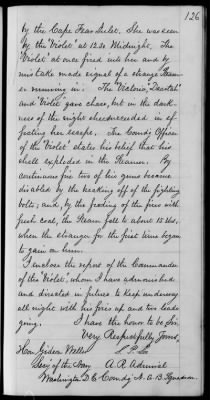 126
by the Cape Fear Inlet. She was seen
by the "Violet" at 12.30 Midnight. The
"Violet" at once fired into her and by
mistake made signal of a strange Steam-
er running in. The "Victoria", "Dacotah"
and "Violet" gave chase, but in the dark-
ness of the night she succeeded in ef-
fecting her escape. The Comdg Officer
of the "Violet" states his belief that his
shell exploded in the Steamer. By
continuous fire two of his guns became
disabled by the breaking off of the fighting
bolts; and, by the feeding of the fires with
fresh coal, the Steam fell to about 15 lbs,
when the stranger for the first time began
to gain on him.
I enclose the report of the Commander
of the "Violet", whom I have admonished
and directed in future to keep underway
all night with his fires up and two leads
going. I have the honor to be, Sir,
Very Respectfully Yours,
Hon. Gideon Welles S. P. Lee
Sec'y of the Navy A. R. Admiral
Washington D.C. Comdg N. A. B. Squadron.